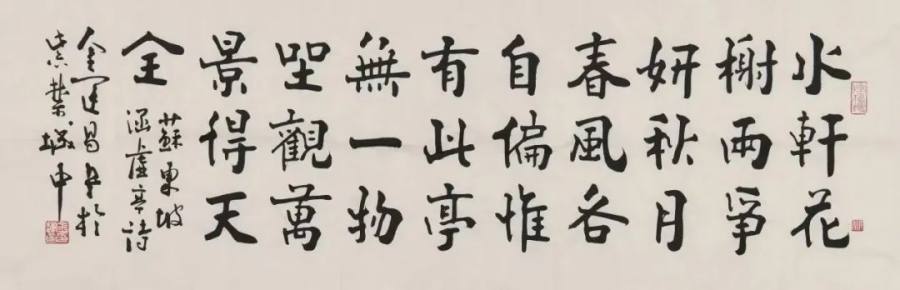 水軒花
榭兩爭
妍秋月
春風各
自偏惟
有此亭
無一物
坐觀萬
景得天
全
蘇東坡
涵虛亭詩
金運昌書於
紫禁城中